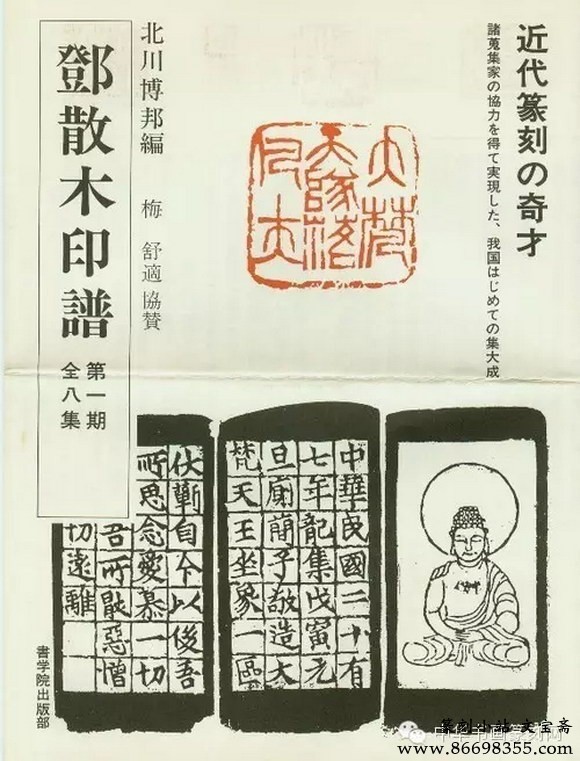 近代篆刻の奇才
諸蒐集家の協力を得て実現した、我国はじめての集大成
北川博邦編 梅 舒適 協賛
鄧散木印譜
第一期
全八集
中華民國二十有
七年龍集戊寅元
旦廁蕳子敬造大
梵天王坐象一區
伏蘄自今以後吾
所思念愛慕一切
吾所 惡憎
切遠離
書学院出版部
篆刻小站·文宝斋
中华书画篆刻网
www.86698355.com